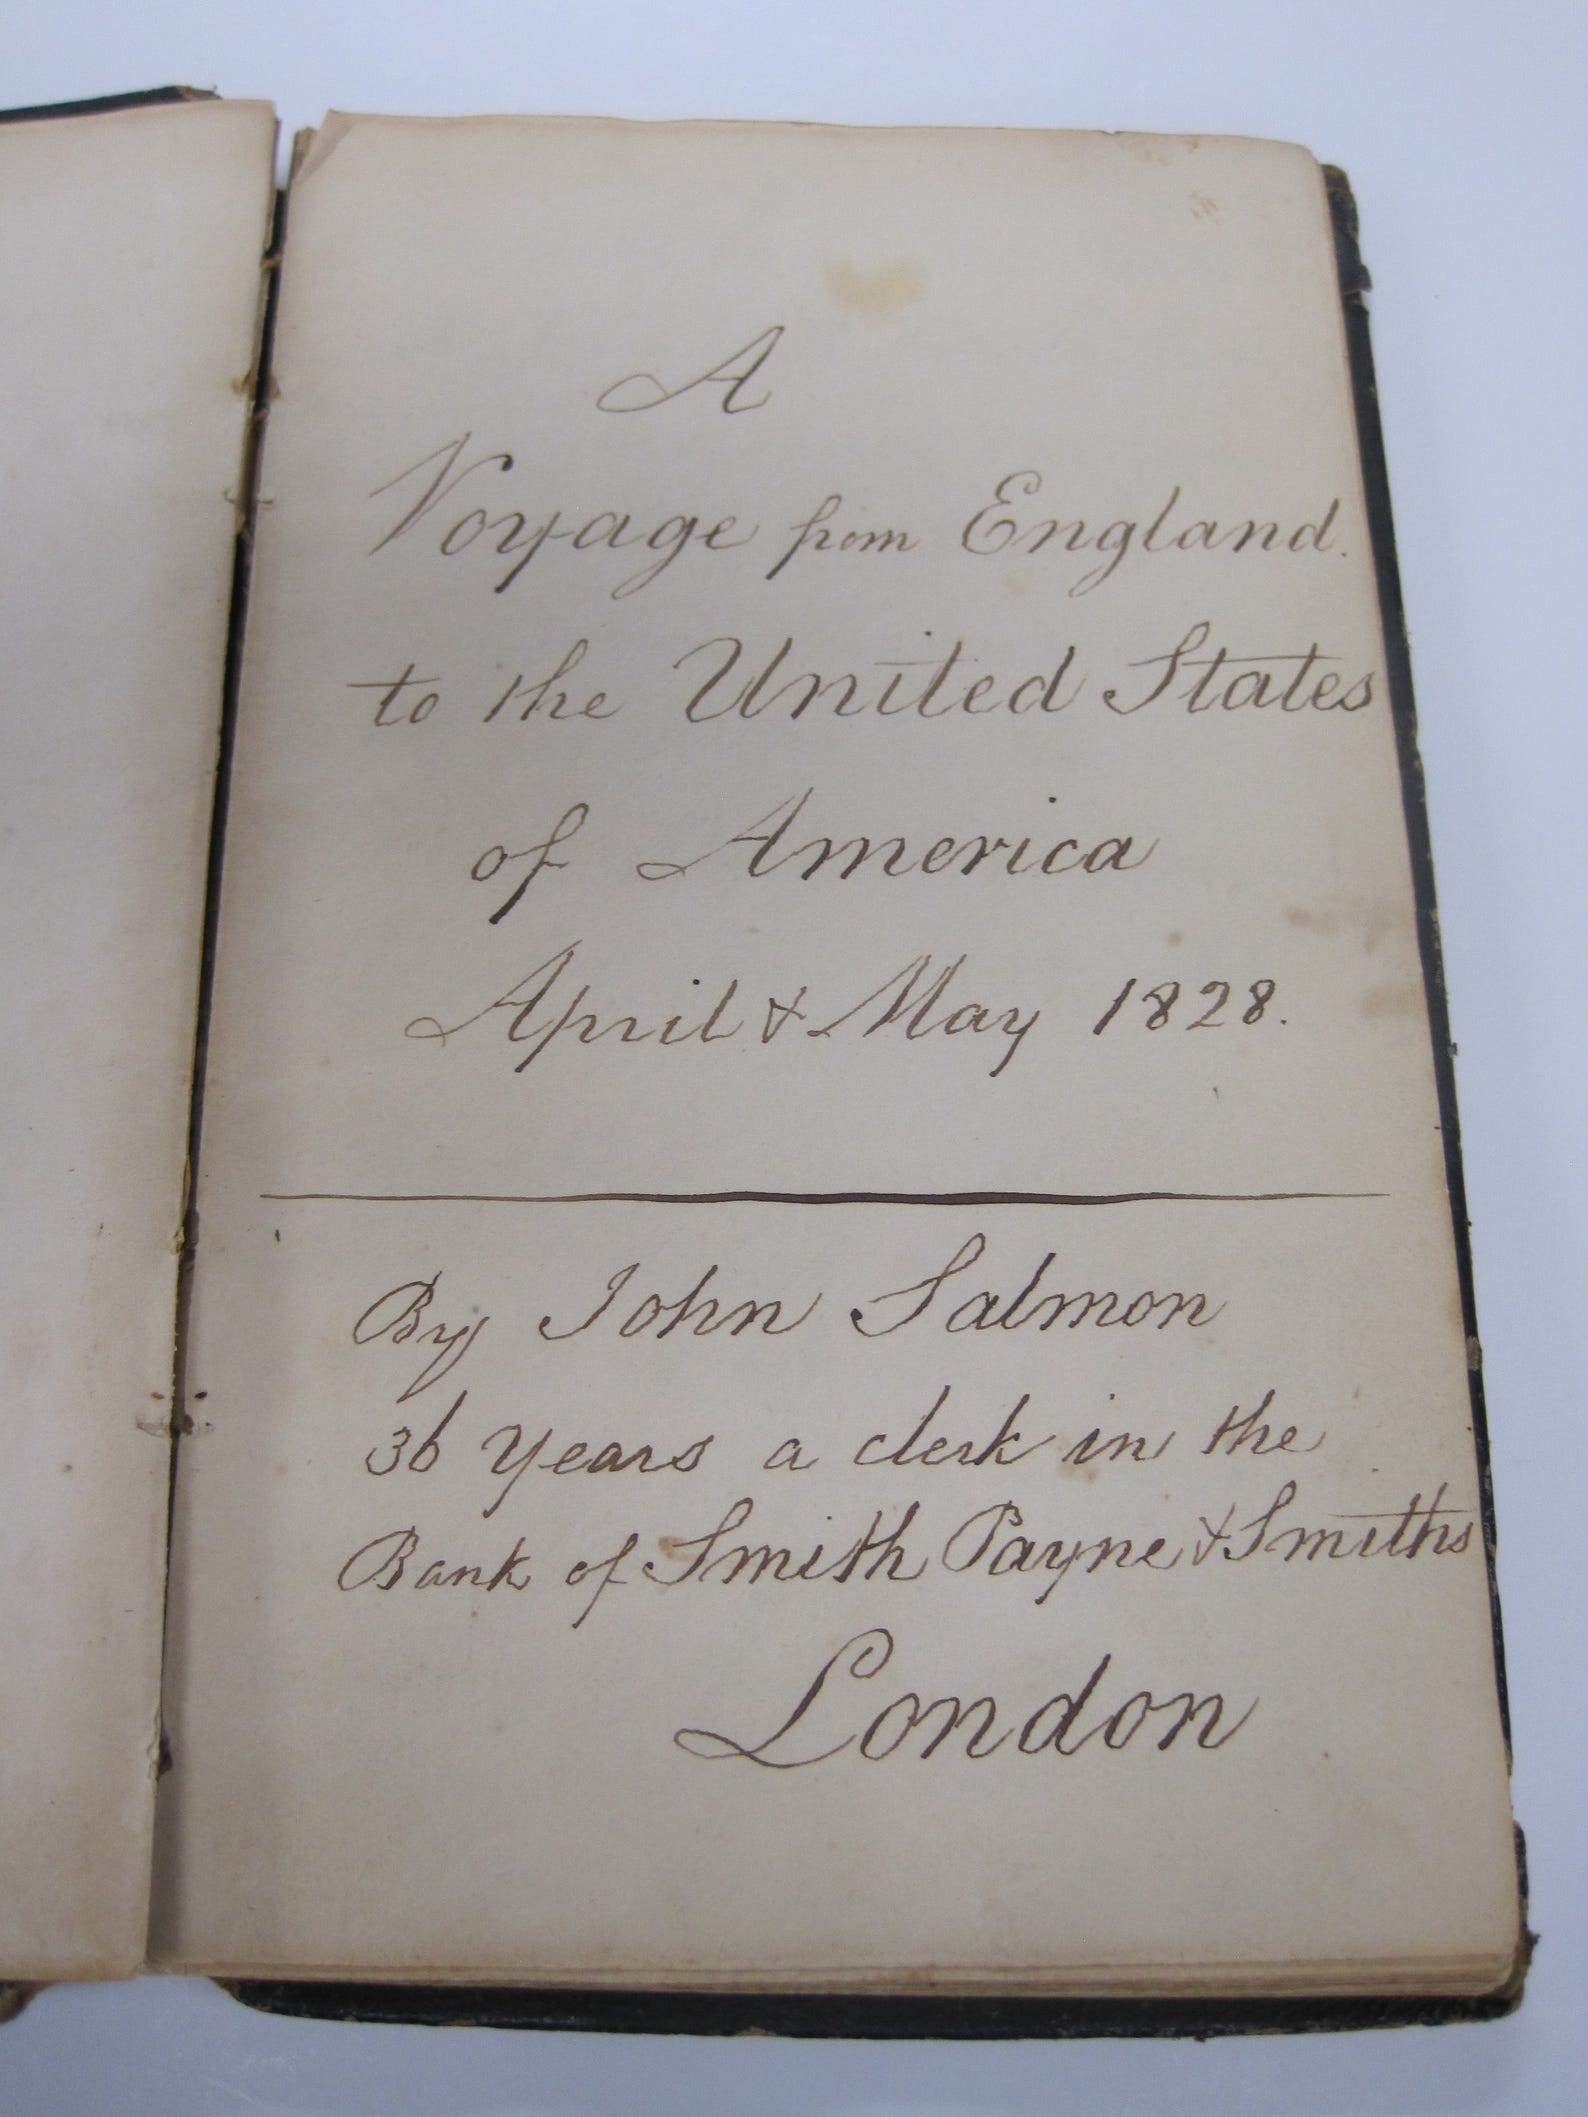 A
Voyage from England.
to the United States
of America
April & May 1828.
By John Salmon
36 Years a clerk in the
Bank of Smith Payne & Smiths
London